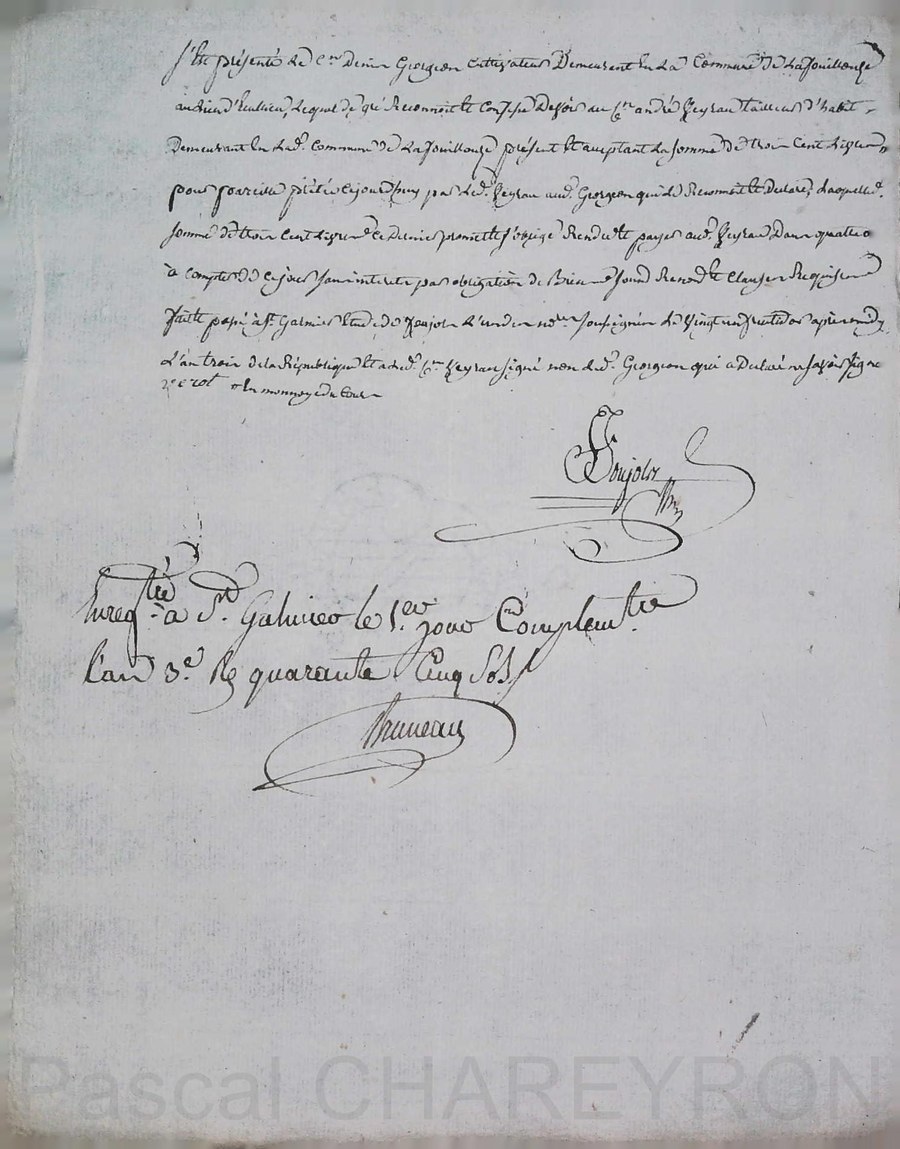 S'est présenté Le C.en Denis Georgeon Cultivateur Demeurant En La Commune De La fouillouze
au lieu d'eullieu, Lequel de gré Reconnoit Et Confesse Devoir au C.en andré Peyrau tailleur d'habit
Demeurant En Lad. Commune De La fouillouze présent Et acceptant La somme De trois Cent Livres
pour pareille prêtée Cejourd'huy par Led. Peyrau aud. Georgeon qui Le Reconnoit Et Declare, Laquelle d.
somme De trois Cent Livres Ce Denier promet Et s'oblige Rendre Et payer aud. Peyrau Dans quattre
à Compter De Ce jour sans interets par obligation De Biens Soum. Renon. Et Clauses Requises
fait Et passé à St. Galmier Etude De Poujols L'un des no.res soussignés Le Vingt un fructidor après midy
L'an trois de la République Et a Led. C.en Peyrau signé non Led. Georgeon qui a Declaré ne savoir signe
En monnoye du Cours
Poujols
Enreg.tré à St. Galmier le 1.er jour Complem.tre
l'an 3.e R quarante Cinq Sols
Bruneau
Pascal CHAREYRON